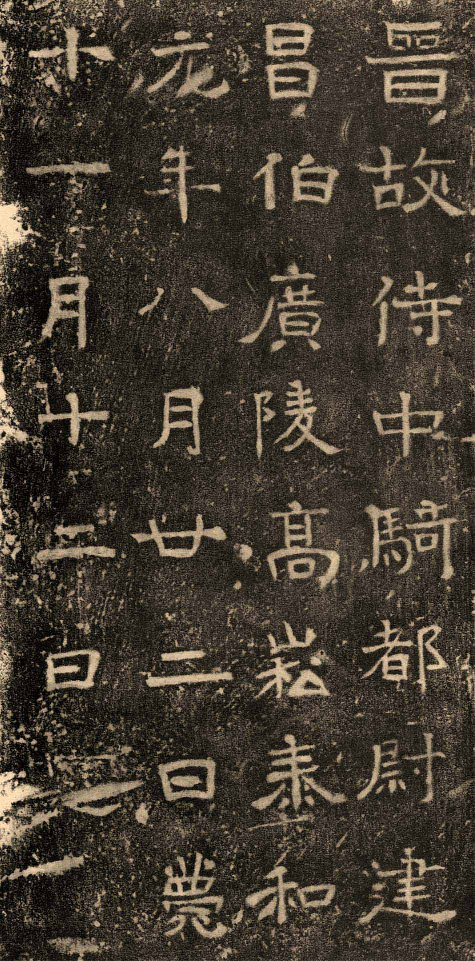 晋故侍中騎都尉建
昌伯廣陵髙崧泰和
元年八月廿二日薨
十一月十二日